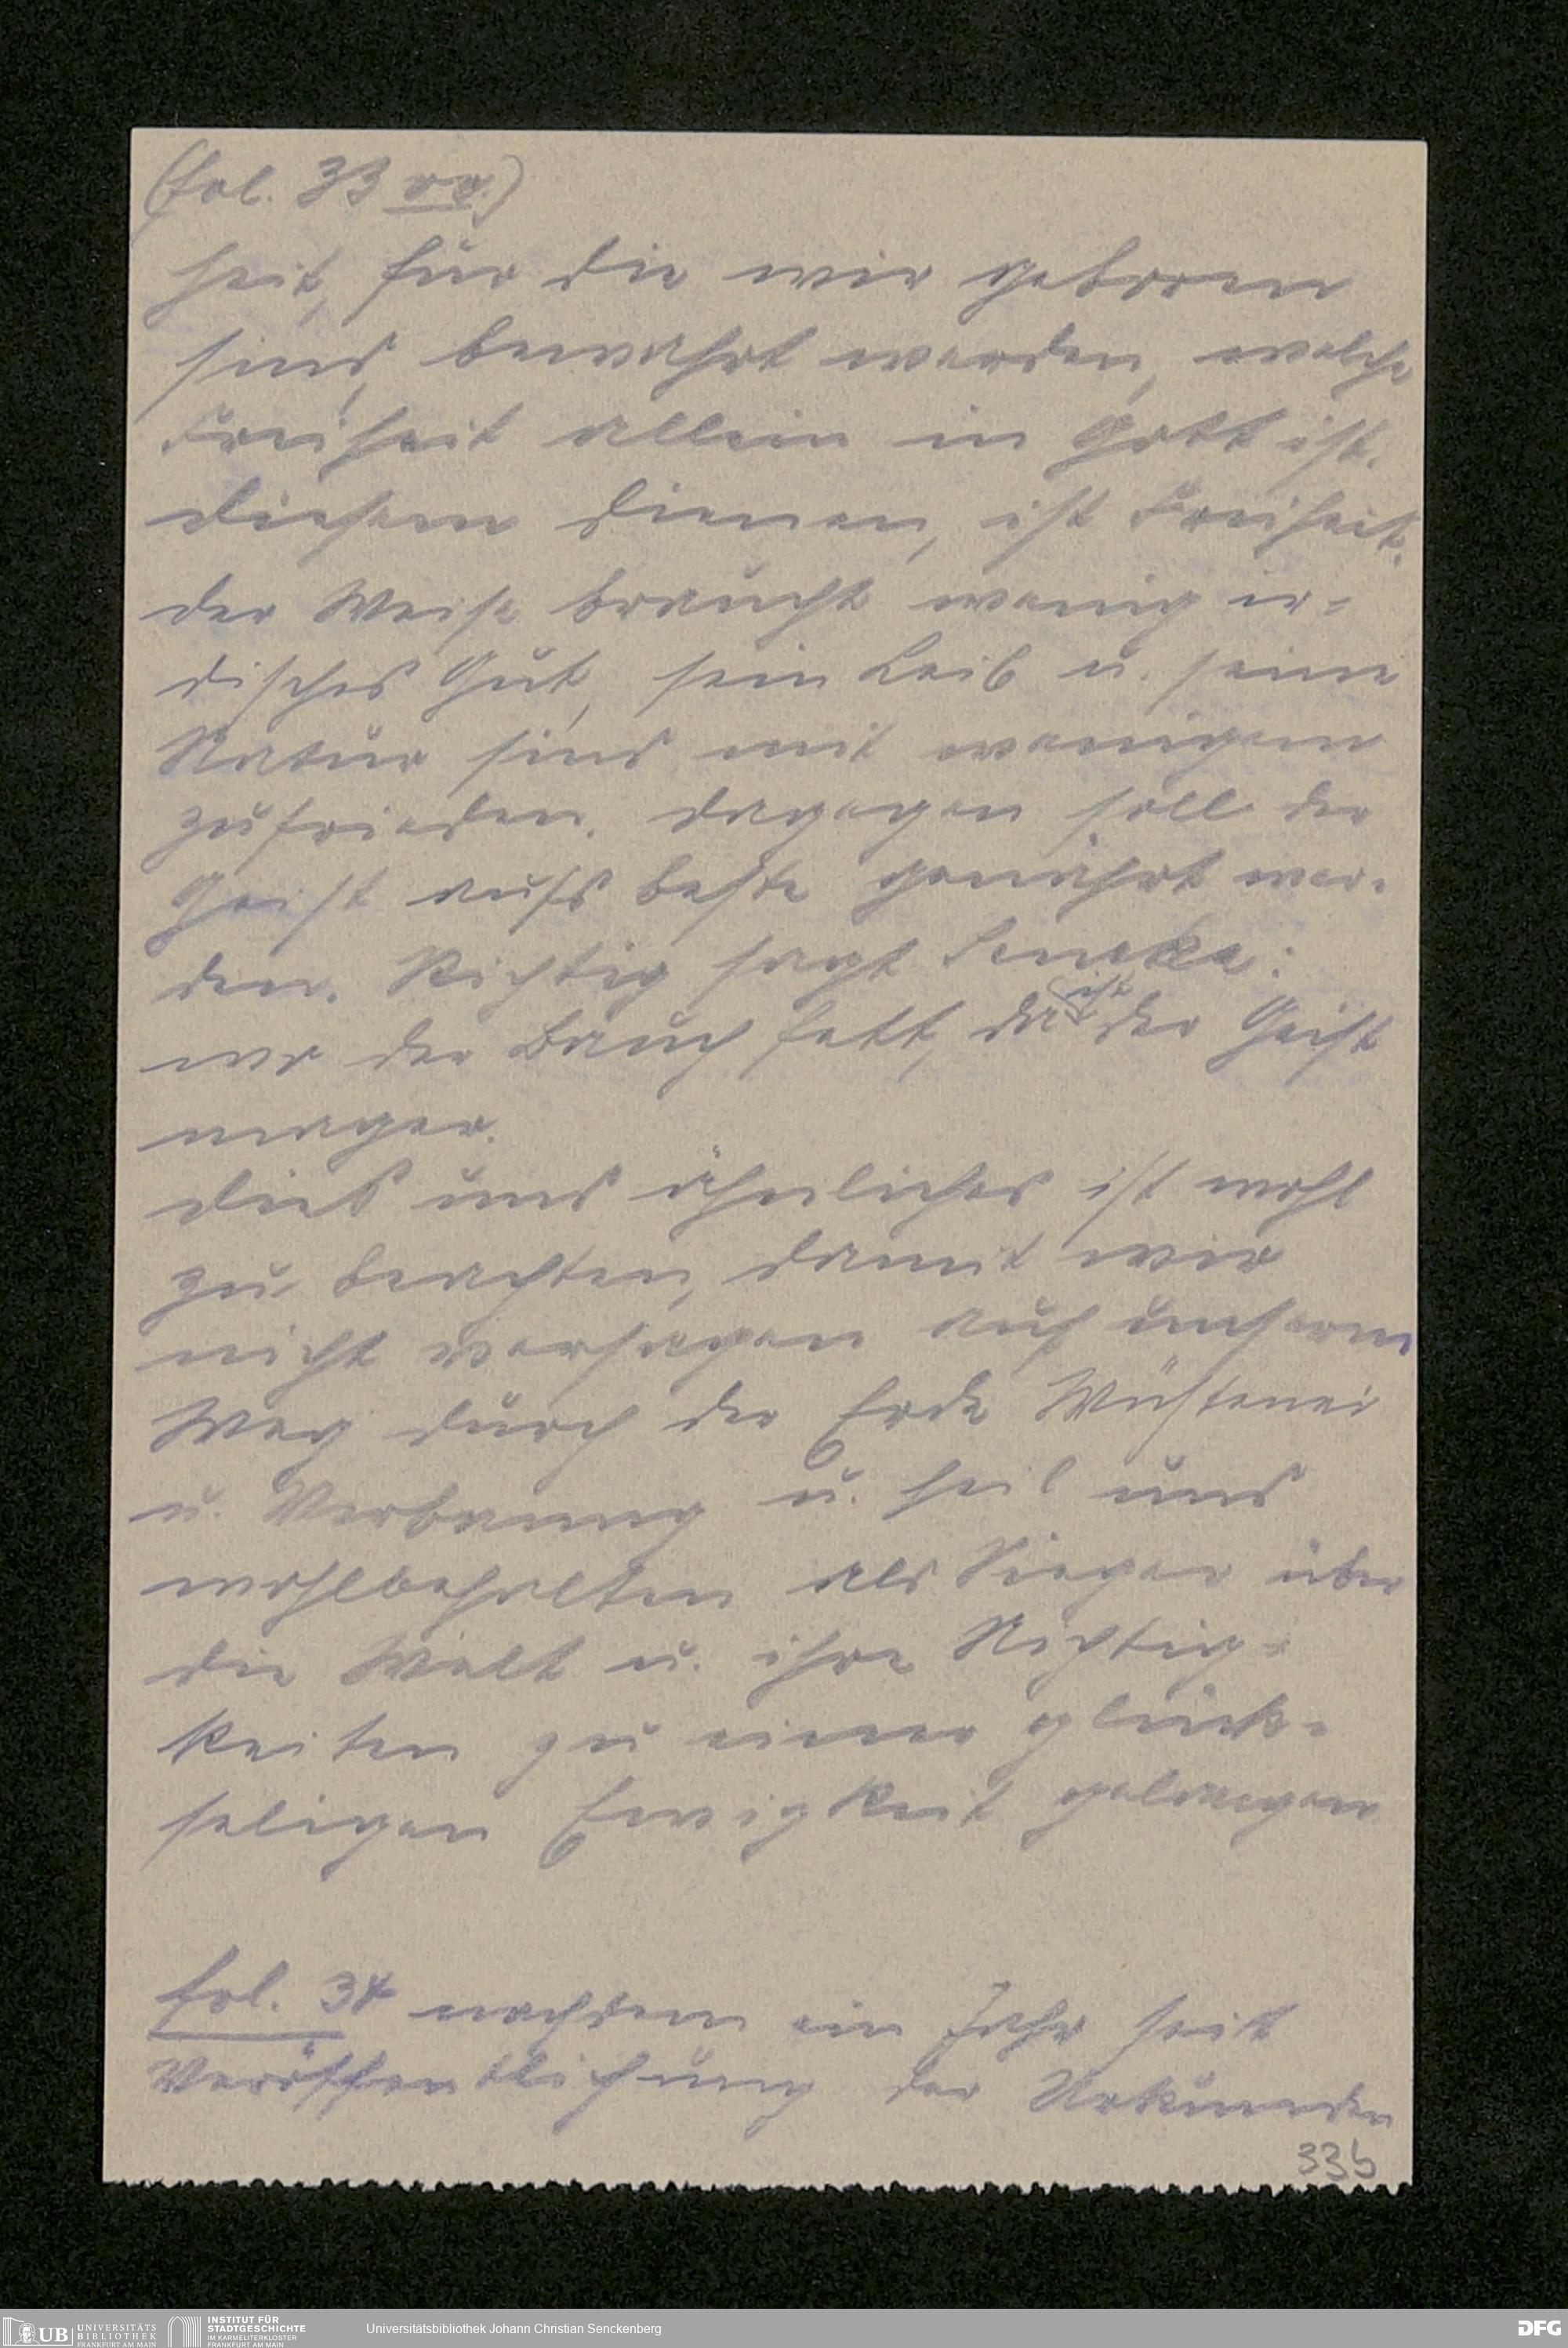 (fol. 33 vo.)
heit, für die wir geboren
sind, bewahrt werden, welche
Freiheit allein in Gott ist.
diesem dienen, ist Freiheit.
der Weise braucht wenig ir=
disches Gut, sein Leib u. seine
Natur sind mit wenigem
zufrieden. dagegen soll der
Geist aufs beste genährt wer=
den. Richtig sagt Seneka:
wo der Bauch fett, da ist der Geist
mager.
dies und ähnliches ist wohl
zu beachten, damit wir
nicht versagen auf unserm
Weg durch der Erde Wüstenei
u. Verbannung u. heil und
wohlbehalten als Sieger über
die Welt u. ihre Nichtig=
keiten zu einer glück=
seligen Ewigkeit gelangen
fol. 34 nachdem ein Jahr seit
Veröffentlichung der Urkunden
33b
UB UNIVERSITÄTS
BIBLIOTHEK
FRANKFURT AM MAIN
INSTITUT FÜR
STADTGESCHICHTE
IM KARMELITERKLOSTER
FRANKFURT AM MAIN
Universitätsbibliothek Johann Christian Senckenberg
DFG